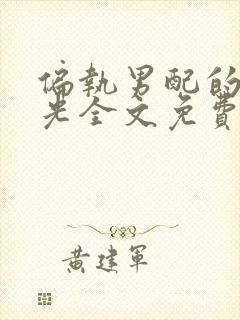 偏執男配的
光全文免費
黃建軍